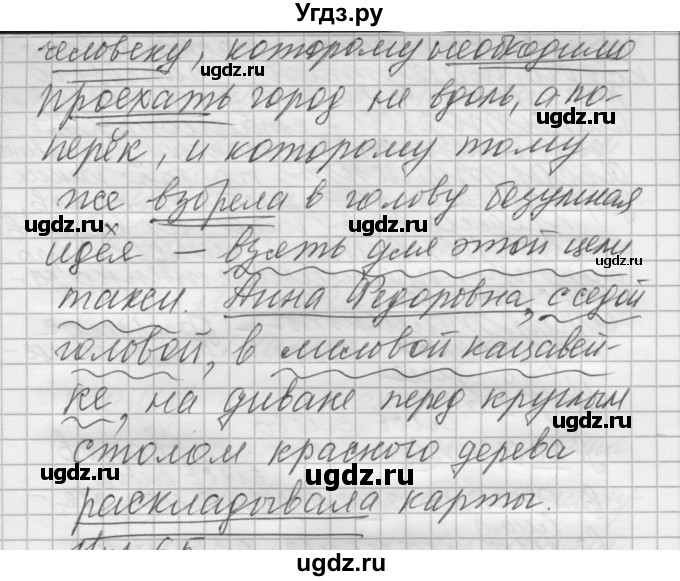 Угдз.ру
человеку, которому необходимо
проехать город не вдоль, а по-
перёк, и которому тому
же взбрела в голову безумная
идея х — взять для этой цели
такси. Анна Федоровна, с седой
головой, в меловой кацавей-
ке, на диване перед круглым
столом красного дерева
раскладывала карты.
ugdz.ru
ugdz.ru
ugdz.ru
ugdz.ru
ugdz.ru
ugdz.ru
ugdz.ru
ugdz.ru
ugdz.ru
ugdz.ru
ugdz.ru
ugdz.ru
ugdz.ru